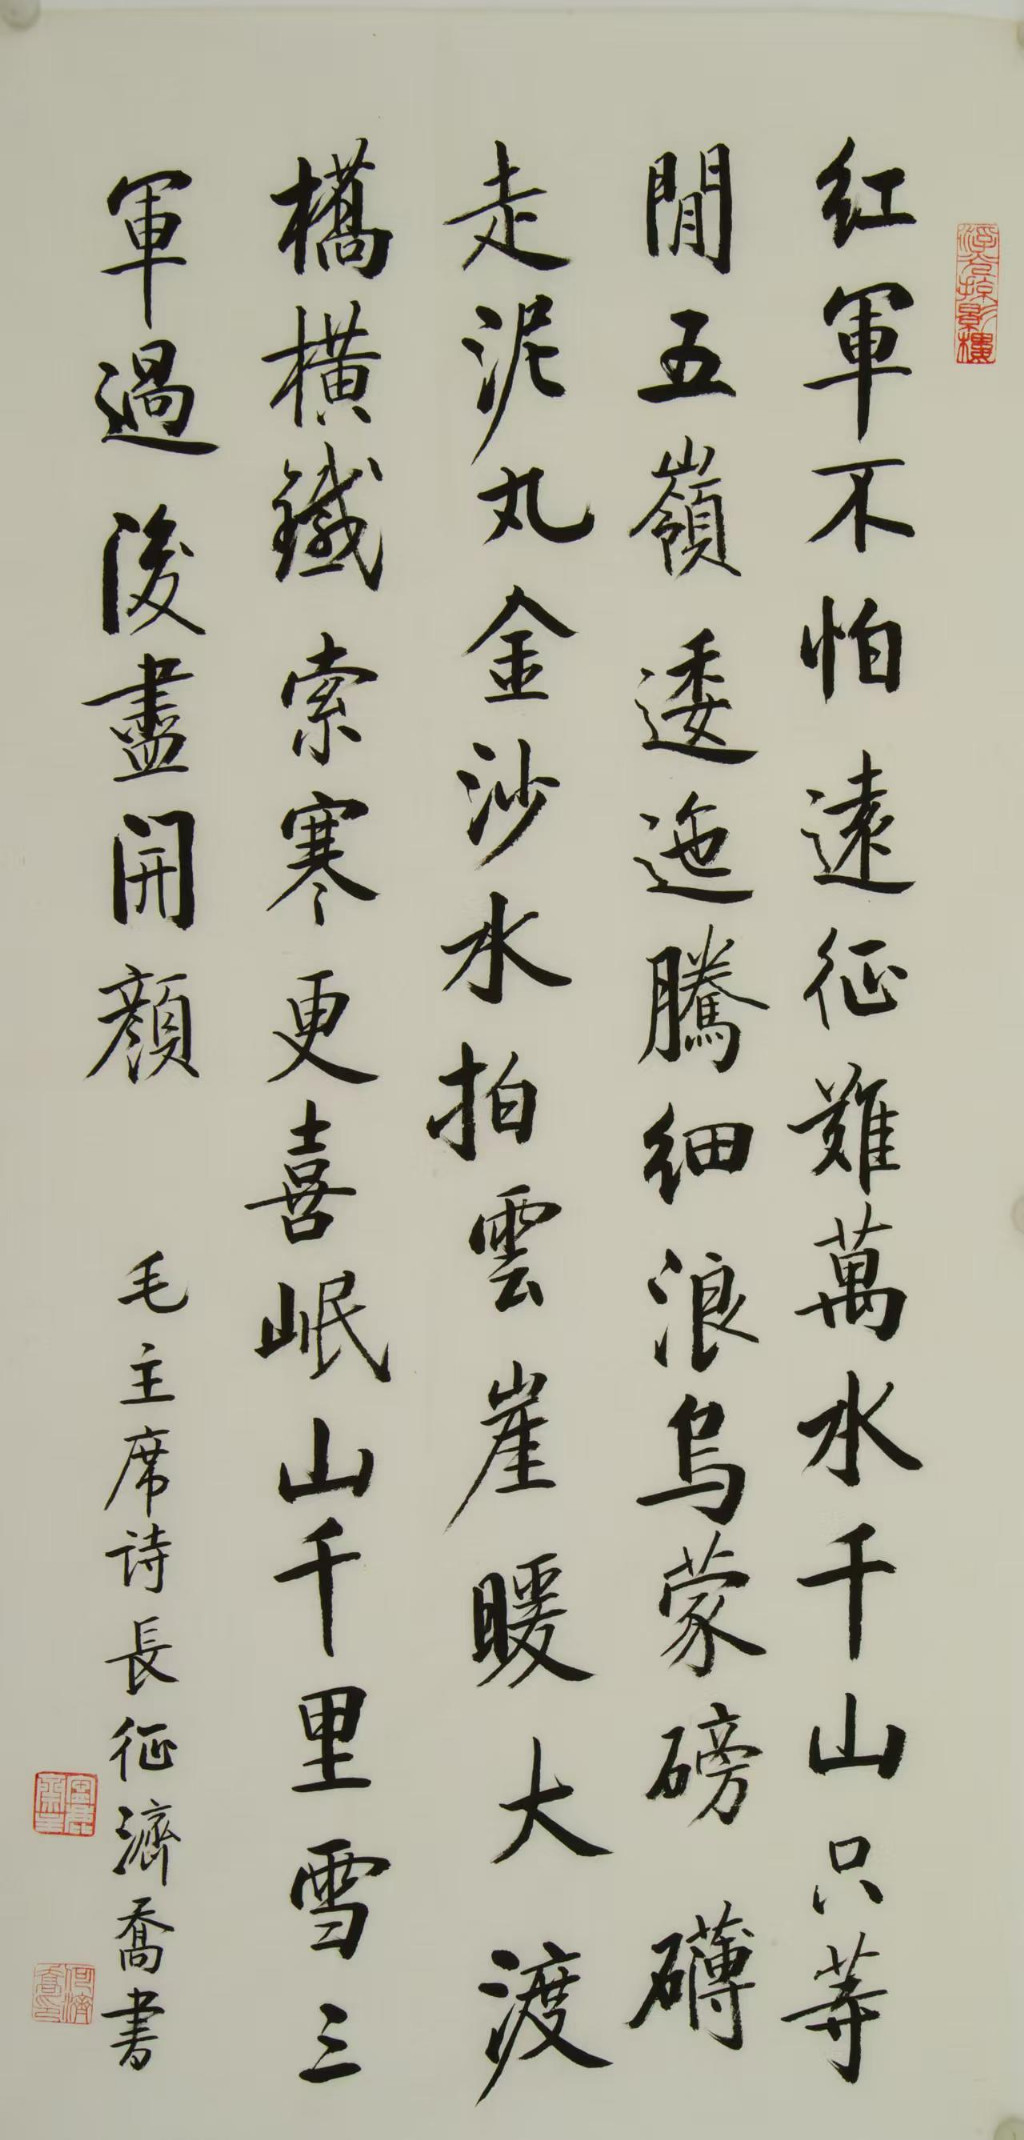 紅軍不怕遠征難萬水千山只等
閒五嶺逶迤騰細浪烏蒙磅礴
走泥丸金沙水拍雲崖暖大渡
橋橫鐵索寒更喜岷山千里雪三
軍過後盡開顏
毛主席詩長征濟喬書